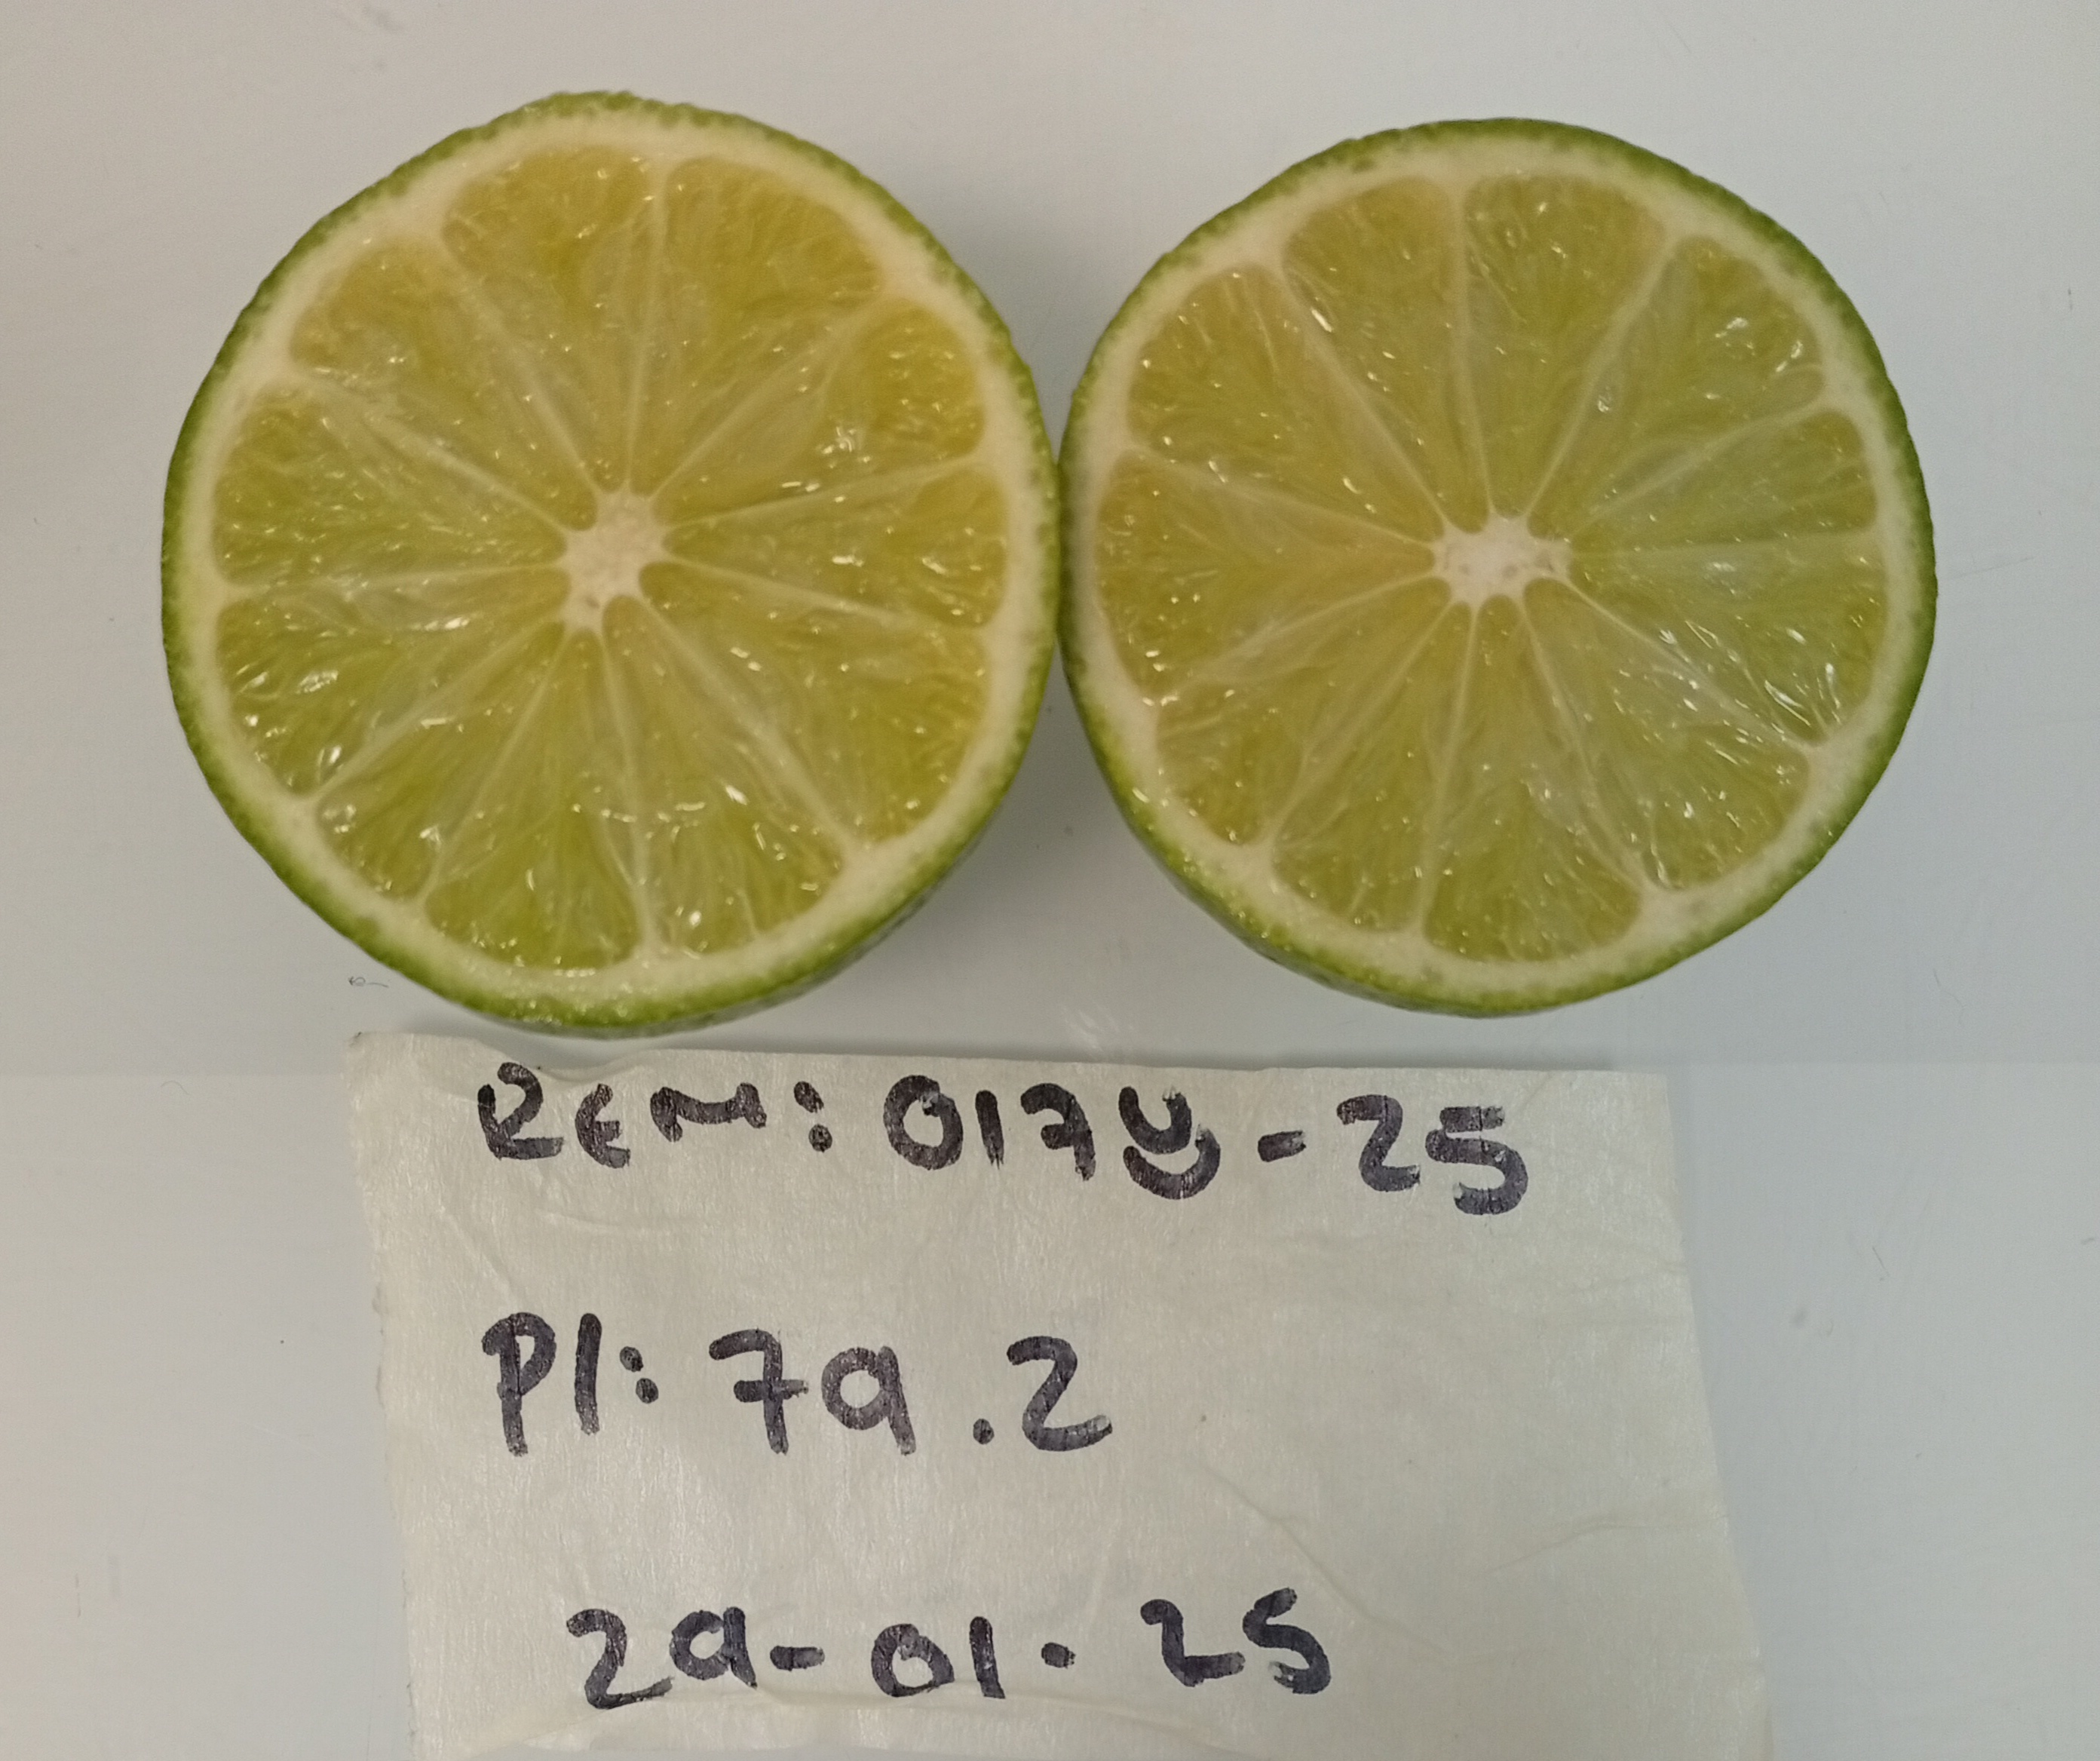 REM: 0178-25
Pl: 79.2
29-01-25